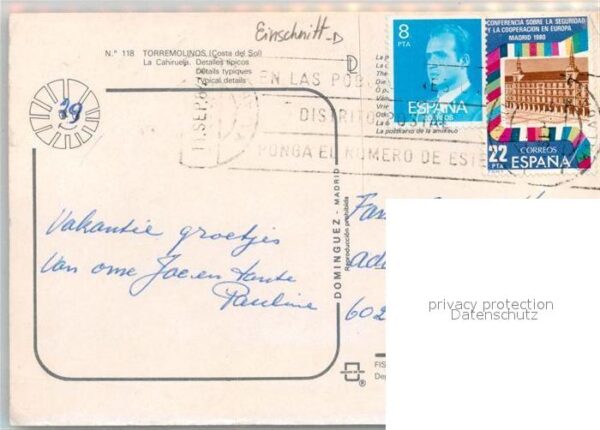 Einschnitt
N.° 118 TORREMOLINOS (Costa del Sol)
La Cahiruela. Detalles típicos
Détails typiques
Typical details
29
8
PTA
ESPAÑA
CONFERENCIA SOBRE LA SEGURIDAD
Y LA COOPERACION EN EUROPA
MADRID 1980
22
PTA
CORREOS
ESPAÑA
SEP.
EN LAS POB
DISTRITO POSTAL
PONGA EL NUMERO DE ESTE
La p
La c
The
O p
La postkarto de la amikeco
DOMINGUEZ - MADRID
Reproducción prohibida
Vakantie groetjes
Van ome Joe en tante
Pauline
Fam
602
privacy protection
Datenschutz
FIS
De